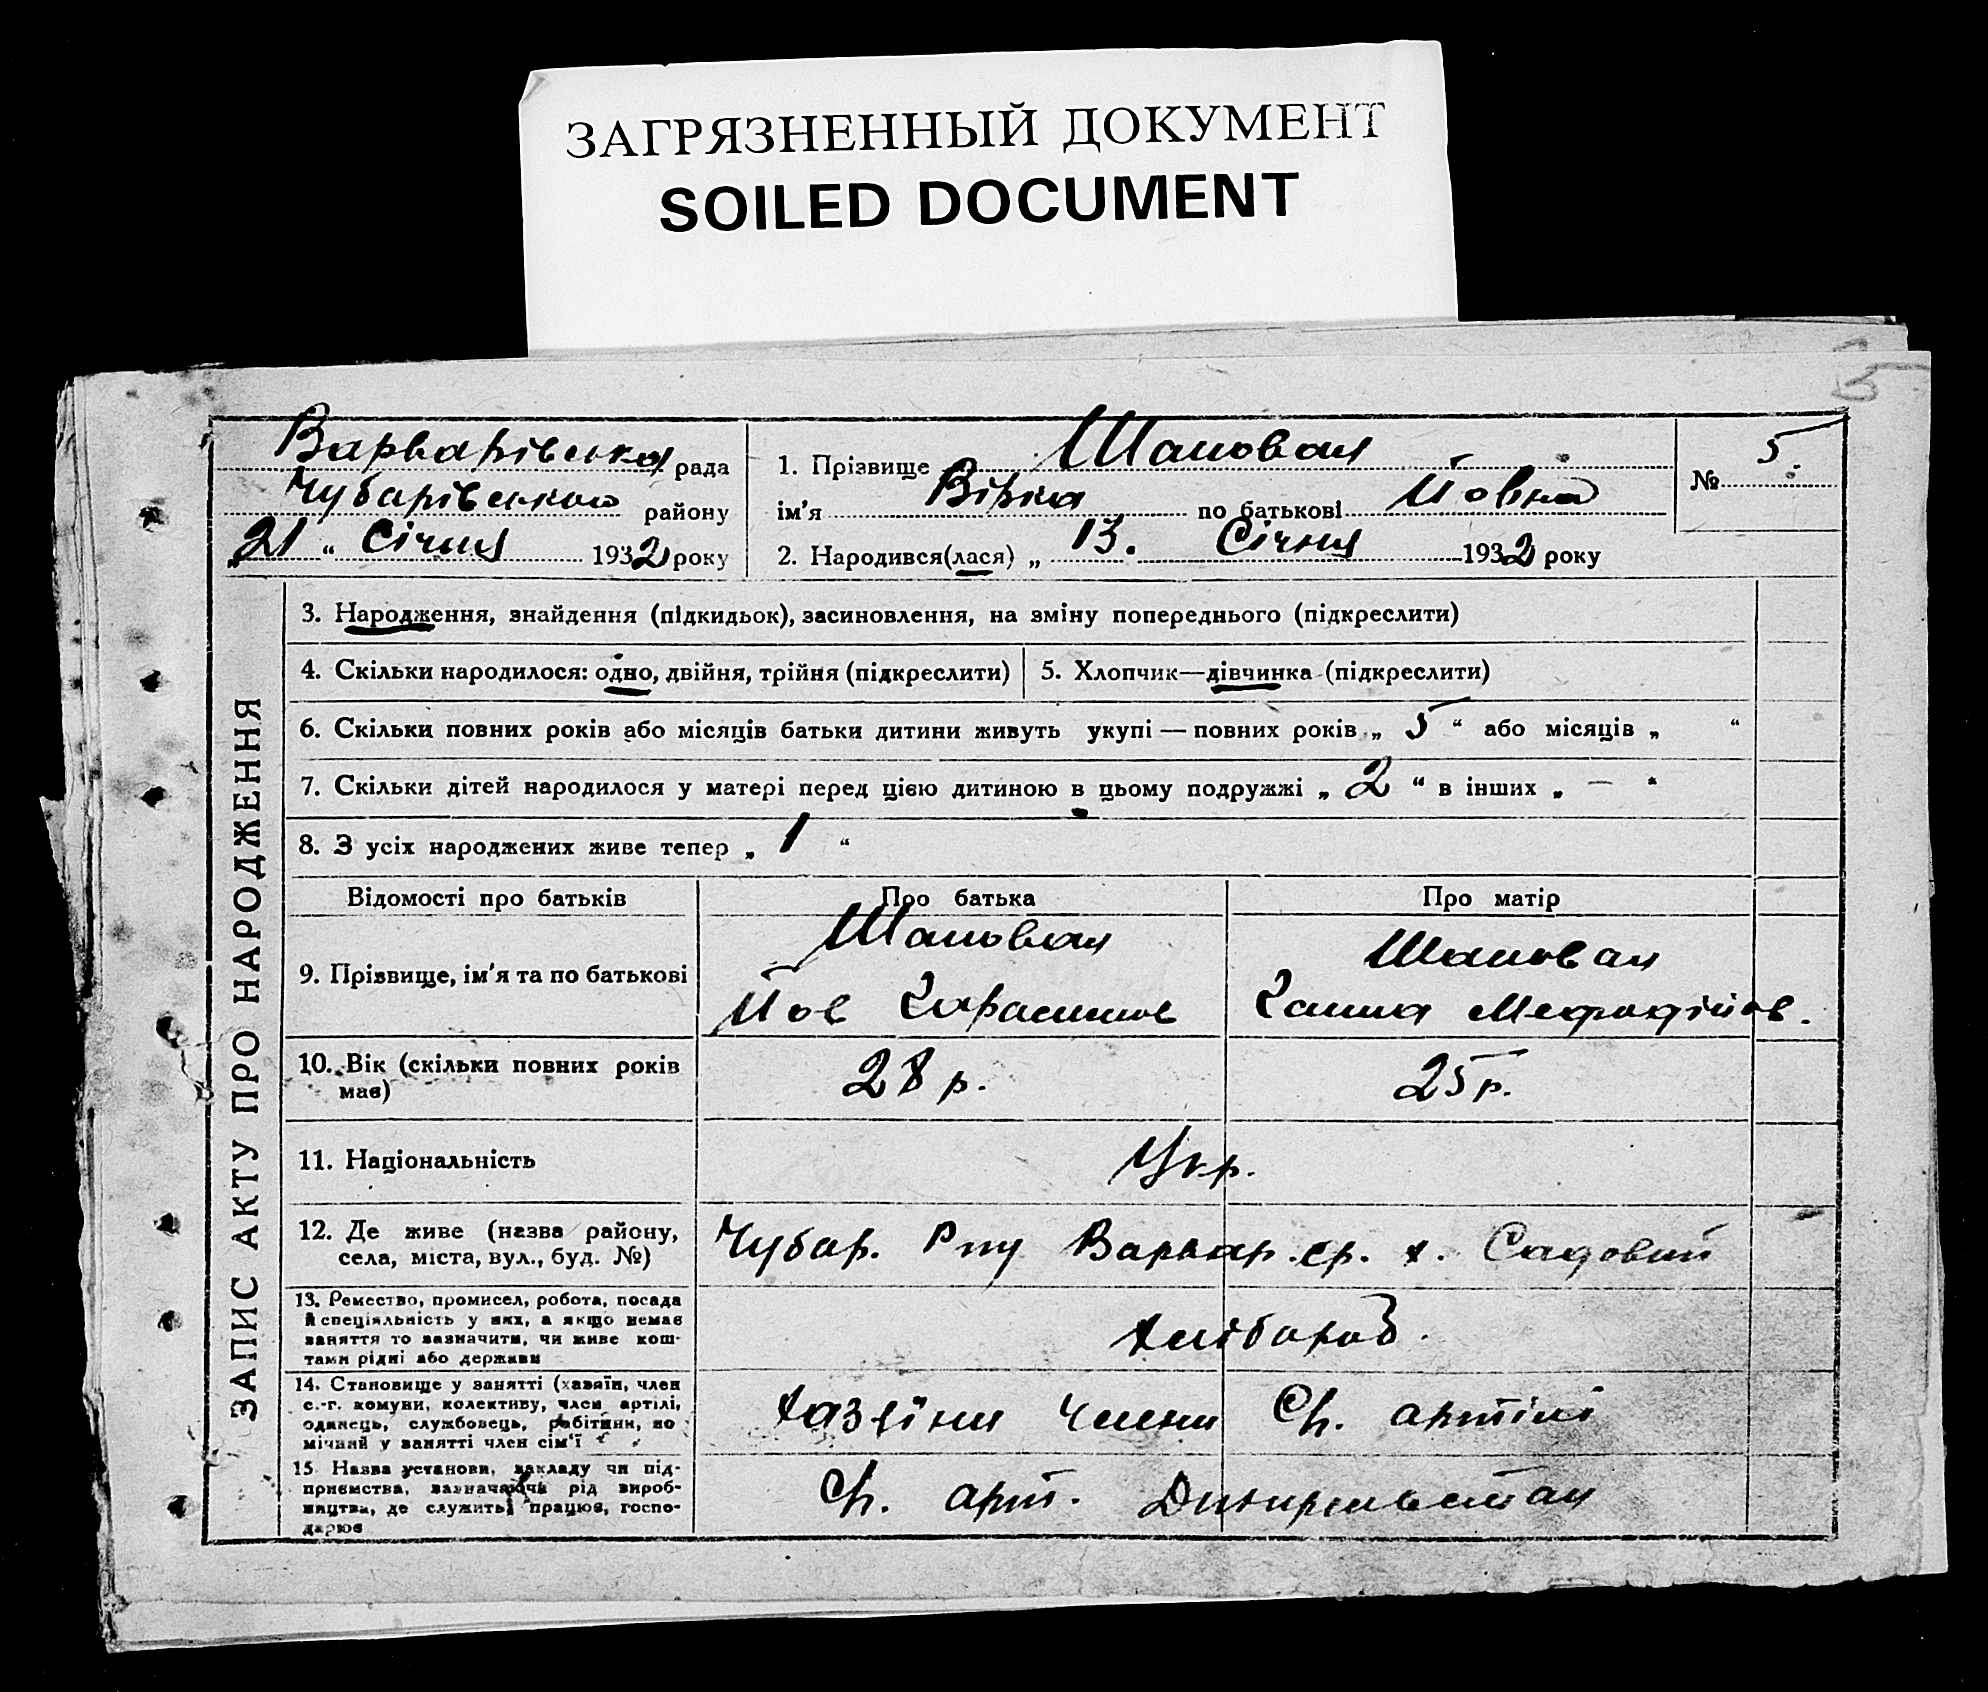 ЗАГРЯЗНЕННЫЙ ДОКУМЕНТ
SOILED DOCUMENT
5
Варварівська рада
Чубарівського району
„21“ Січня 1932 року
1. Прізвище Шаповал
ім'я Віра по батькові Йовна
2. Народився(лася) „13. Січня 1932 року
№ 5.
ЗАПИС АКТУ ПРО НАРОДЖЕННЯ
3. Народження, знайдення (підкидьок), засиновлення, на зміну попереднього (підкреслити)
4. Скільки народилося: одно, двійня, трійня (підкреслити)
5. Хлопчик—дівчинка (підкреслити)
6. Скільки повних років або місяців батьки дитини живуть укупі — повних років „ 5 “ або місяців „ “
7. Скільки дітей народилося у матері перед цією дитиною в цьому подружжі „ 2 “ в інших „ — “
8. З усіх народжених живе тепер „ 1 “
Відомості про батьків
Про батька
Про матір
9. Прізвище, ім'я та по батькові
Шаповал
Йов Гарасимов
Шаповал
Ганна Мефодійов.
10. Вік (скільки повних років має)
28 р.
25 р.
11. Національність
Укр.
12. Де живе (назва району,
села, міста, вул., буд. №)
Чубар. Р-ну Варвар. ср. х. Садовий
13. Ремество, промисел, робота, посада
й спеціяльність у них, а якщо немає
заняття то зазначити, чи живе кош-
тами рідні або держави
Хлібороб.
14. Становище у занятті (хазяїн, член
с.-г. комуни, колективу, член артілі,
одинець, службовець, робітник, по
мічний у занятті член сім'ї
хазяїни члени Сг. артілі
15 Назва установи, закладу чи під-
приємства, зазначаючи рід вироб-
ництва, де служить, працює, госпо-
дарює
Сг. арт.